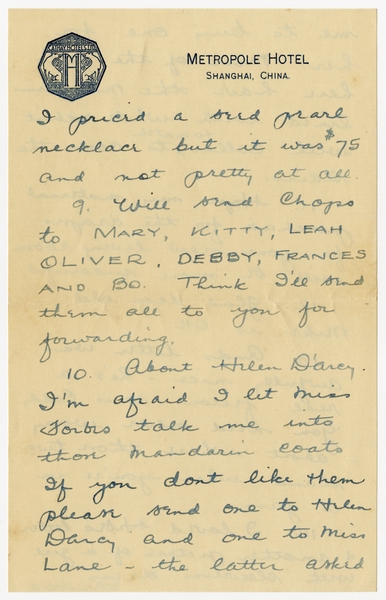 CATHAY HOTELS LTD.
METROPOLE HOTEL
SHANGHAI, CHINA.
I priced a seed pearl
necklace but it was $75
and not pretty at all.
9. Will send Chops
to MARY, KITTY, LEAH
OLIVER, DEBBY, FRANCES
AND BO. Think I'll send
them all to you for
forwarding.
10. About Helen D'arcy.
I'm afraid I let Miss
Forbes talk me into
those Mandarin coats
If you dont like them
please send one to Helen
Darcy and one to Miss
Lane – the latter asked